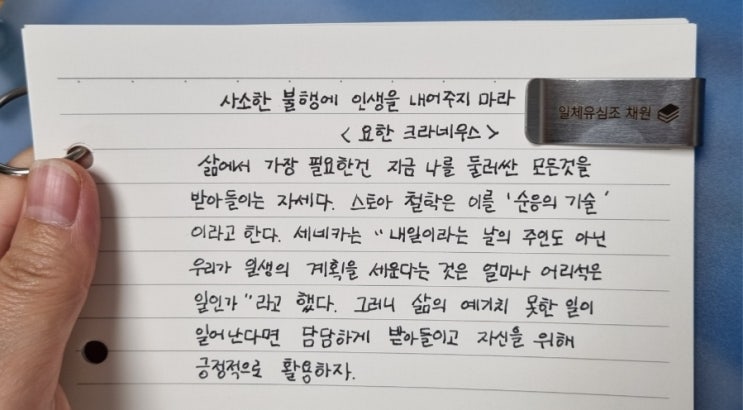 사소한 불행에 인생을 내어주지 마라
일체유심조 채원
< 요한 크라네우스 >
삶에서 가장 필요한건 지금 나를 둘러싼 모든것을
받아들이는 자세다. 스토아 철학은 이를 '순응의 기술'
이라고 한다. 세네카는 "내일이라는 날의 주인도 아닌
우리가 일생의 계획을 세운다는 것은 얼마나 어리석은
일인가"라고 했다. 그러니 삶의 예기치 못한 일이
일어난다면 담담하게 받아들이고 자신을 위해
긍정적으로 활용하자.